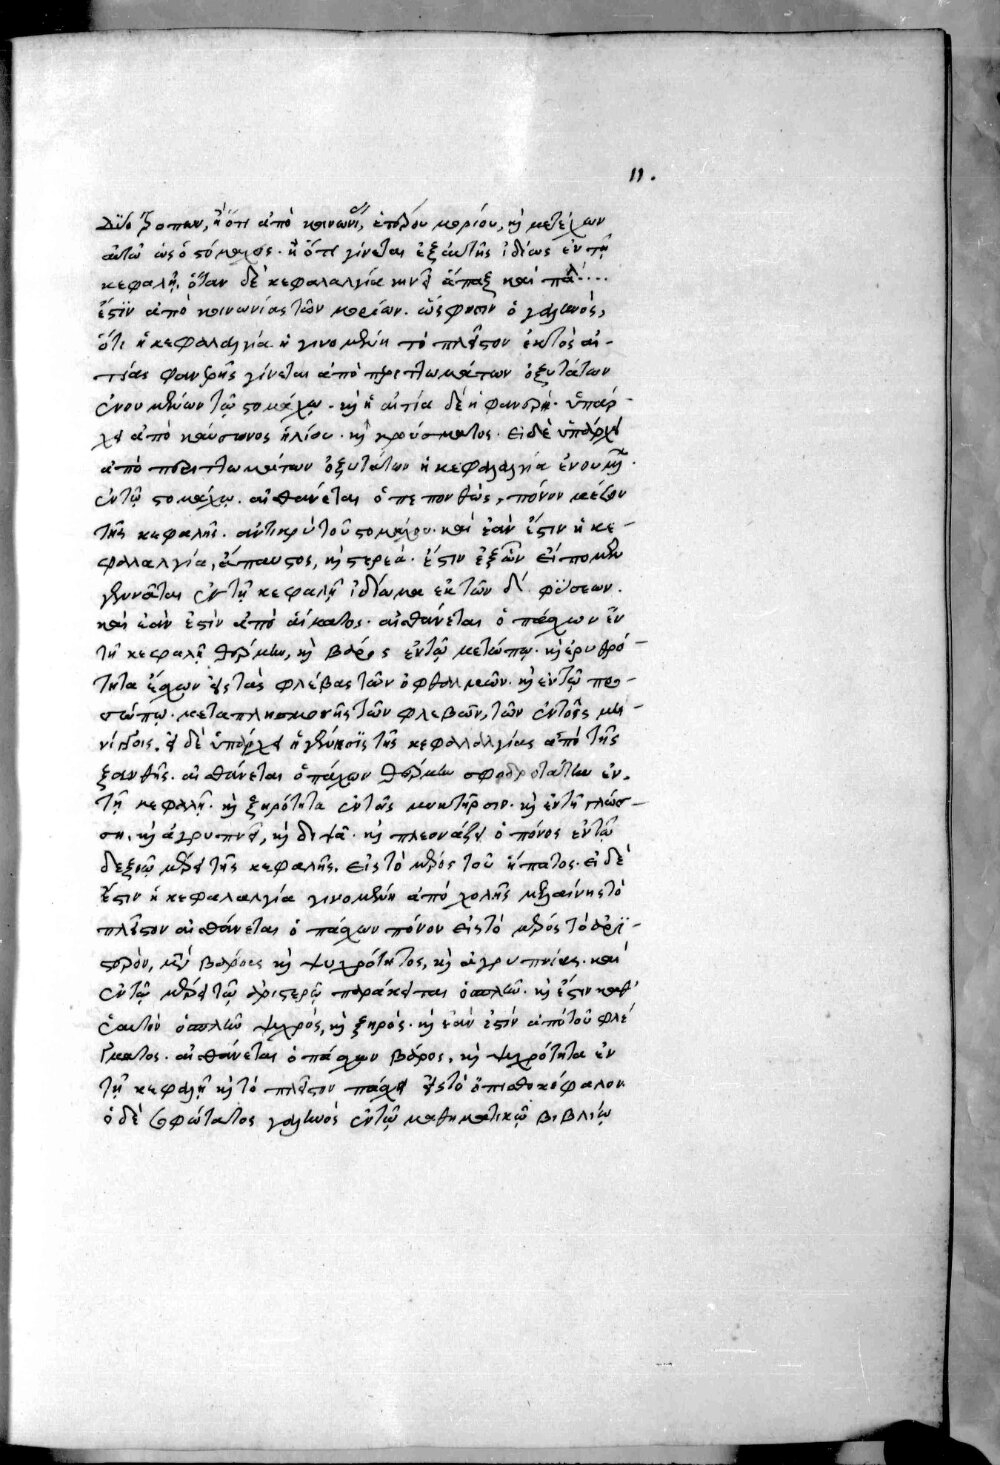 11.
δύο τρόπων, ἢ ὅτι ἀπὸ κοινωνί, ἑτέρου μορίου, καὶ μετέχων
αὐτῶ ὡς ὁ στόμαχος. ἢ ὅτι γίνεται ἐξαυτῆς ἰδίως ἐν τῆ
κεφαλῆ. ὅταν δὲ κεφαλαλγία κινεῖ ἅπαξ καὶ
ἔστιν ἀπὸ κοινωνίας τῶν μορίων. ὥς φησιν ὁ γαληνὸς,
ὅτι ἡ κεφαλαλγία ἡ γινομένη τὸ πλεῖστον ἐκτὸς αἰ-
τίας φανερῆς γίνεται ἀπὸ περιττωμάτων ὀξυτάτων
ἐνουμένων τῶ στομάχω. καὶ ἡ αἰτία δὲ ἡ φανερὴ. ὑπάρ-
χει ἀπὸ καύσωνος ἡλίου. καὶ κρούσματος. εἰ δὲ ὑπάρχει
ἀπὸ περιττωμάτων ὀξυτάτων ἡ κεφαλαλγία ἐνουμεν.
ἐν τῶ στομάχω. αἰσθάνεται ὁ πεπονθὼς, πόνον μέσον
τῆς κεφαλῆς. ἀντικρὺ τοῦ στομάχου. καὶ ἐὰν ἔστιν ἡ κε-
φαλαλγία, ἄπαυστος, καὶ στερεά. ἔστιν ἐξ ὧν εἴπομεν
γεννᾶται ἐν τῆ κεφαλῆ ἰδίωμα ἐκ τῶν δ΄ φύσεων.
καὶ ἐὰν ἐστὶν ἀπὸ αἵματος. αἰσθάνεται ὁ πάσχων ἐν
τῆ κεφαλῆ θέρμην, καὶ βάρος ἐν τῶ μετώπω. καὶ ἐρυθρό-
τητα ἔχων εἰς τὰς φλέβας τῶν ὀφθαλμῶν. καὶ ἐν τῶ προ-
σώπω. μετὰ πλησμονῆς τῶν φλεβῶν, τῶν ἐν τοῖς μη-
νίγγοις. εἰ δὲ ὑπάρχει ἡ γέννησις τῆς κεφαλαλγίας ἀπὸ τῆς
ξανθῆς. αἰσθάνεται ὁ πάσχων θέρμην σφοδροτάτην ἐν.
τῆ κεφαλῆ. καὶ ξηρότητα ἐν τοῖς μυκτῆρσιν. καὶ ἐν τῆ γλώσ-
ση. καὶ ἀγρυπνεῖ, καὶ διψᾶ. καὶ πλεονάζει ὁ πόνος ἐν τῶ
δεξιῶ μέρει τῆς κεφαλῆς. εἰς τὸ μέρος τοῦ ἥπατος. εἰ δὲ
ἔστιν ἡ κεφαλαλγία γινομένη ἀπὸ χολῆς μελαίνης τὸ
πλεῖστον αἰσθάνεται ὁ πάσχων πόνον εἰς τὸ μέρος τὸ ἀρι-
στερὸν, μετὰ βάρους καὶ ψυχρότητος, καὶ ἀγρυπνίας. καὶ
ἐν τῶ μέρει τῶ ἀριστερῶ παράκειται ὁ σπλήν. καὶ ἔστιν καθ'
ἑαυτὸν ὁ σπλὴν ψυχρός, καὶ ξηρός. καὶ ἐὰν ἐστὶν ἀπὸ τοῦ φλέ
γματος. αἰσθάνεται ὁ πάσχων βάρος, καὶ ψυχρότητα ἐν
τῆ κεφαλῆ καὶ τὸ πλεῖστον πάσχει εἰς τὸ ὀπισθοκέφαλον
ὁ δὲ σοφώτατος γαληνὸς ἐν τῶ μαθηματικῶ βιβλίω